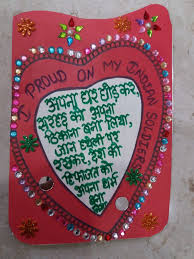 I PROUD ON MY INDIAN SOLDIER
अपना घर छोड़ कर,
सरहद को अपना
ठिकाना बना लिया,
जान हथेली पर
रखकर, देश की
हिफाजत को
अपना धर्म